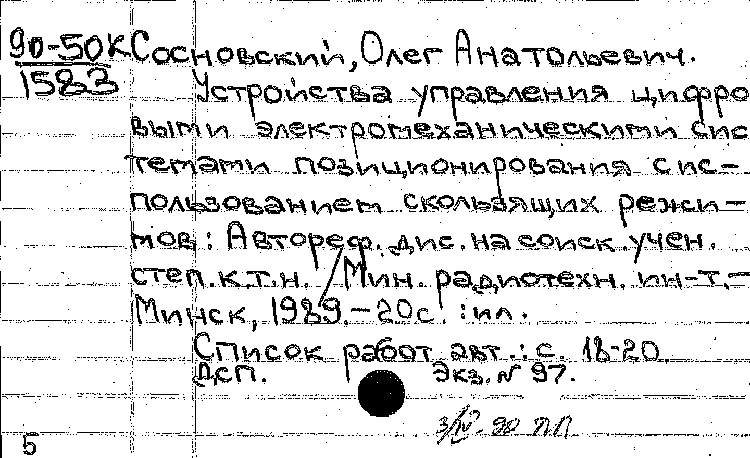 90-50К Сосновский, Олег Анатольевич.
1583 Устройства управления цифро
выми электромеханическими сис
темами позиционирования с ис-
пользованием скользящих режи-
мов: Автореф. дис. на соиск. учен.
степ. к.т.н. / Мин. радиотехн. ин-т.-
Минск, 1989.-20с. : ил.
Список работ авт.: с. 18-20.
ДСП. Экз. № 97.
3/IV-90 ПП
5